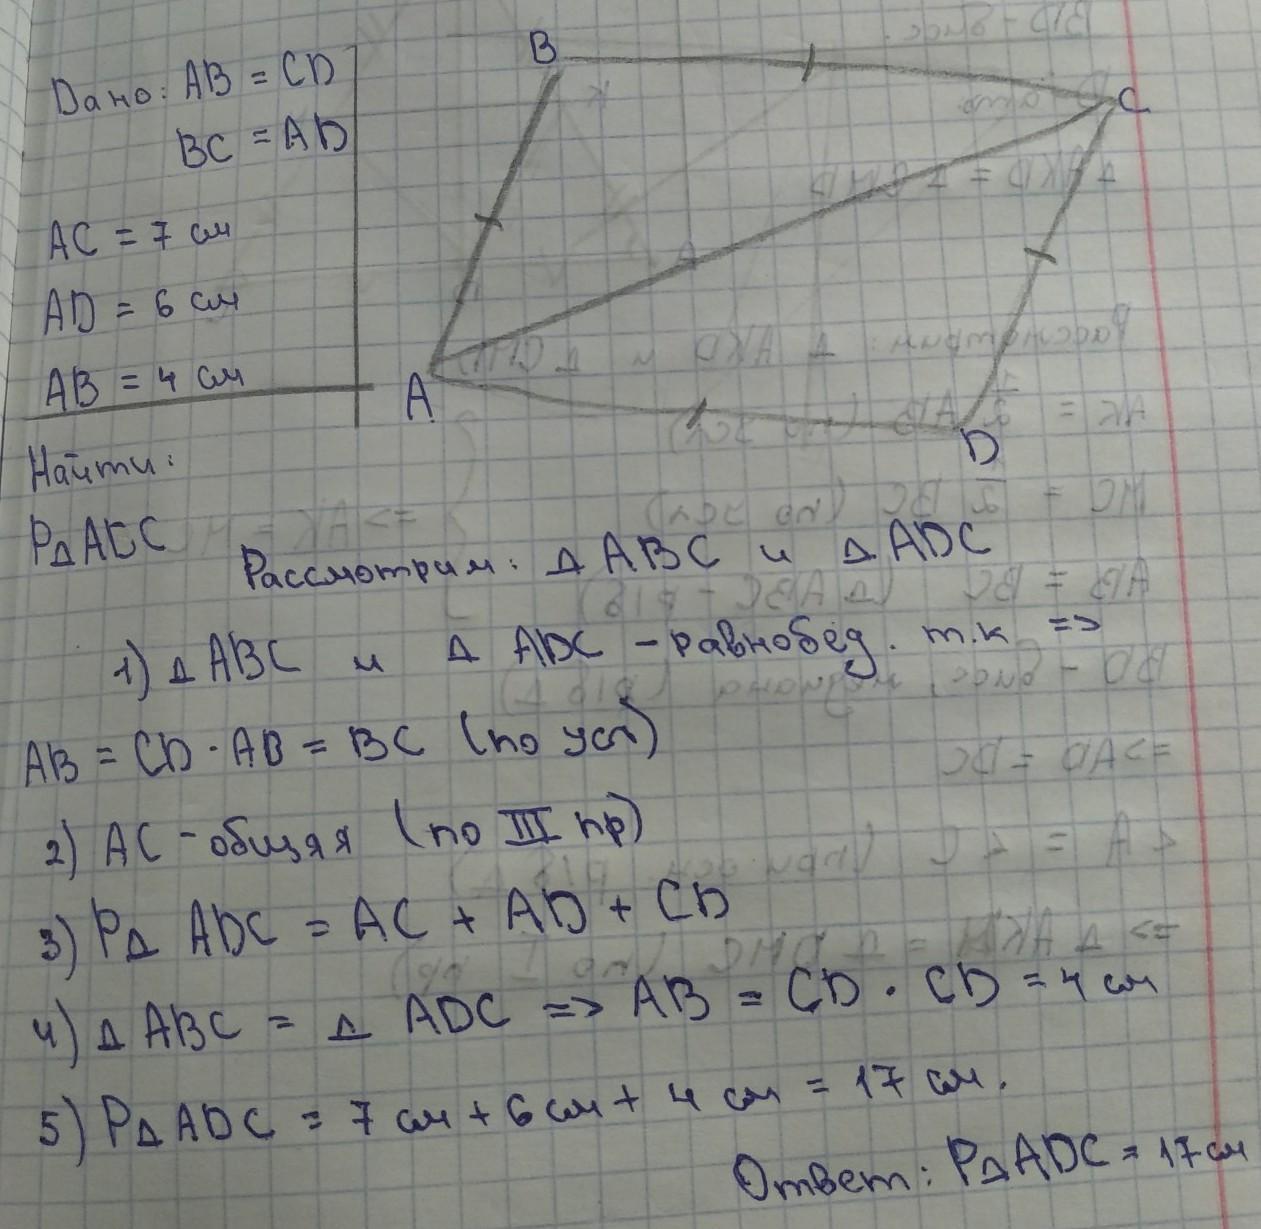 Дано: AB = CD
BC = AD
AC = 7 см
AD = 6 см
AB = 4 см
B
C
A
D
Найти:
P∆ADC
Рассмотрим: ∆ ABC и ∆ ADC
1) ∆ ABC и ∆ ADC - равнобед. т.к =>
AB = CD · AB = BC (по усл)
2) AC - общая (по III пр)
3) P∆ ADC = AC + AD + CD
4) ∆ ABC = ∆ ADC => AB = CD · CD = 4 см
5) P∆ ADC = 7 см + 6 см + 4 см = 17 см.
Ответ: P∆ADC = 17 см